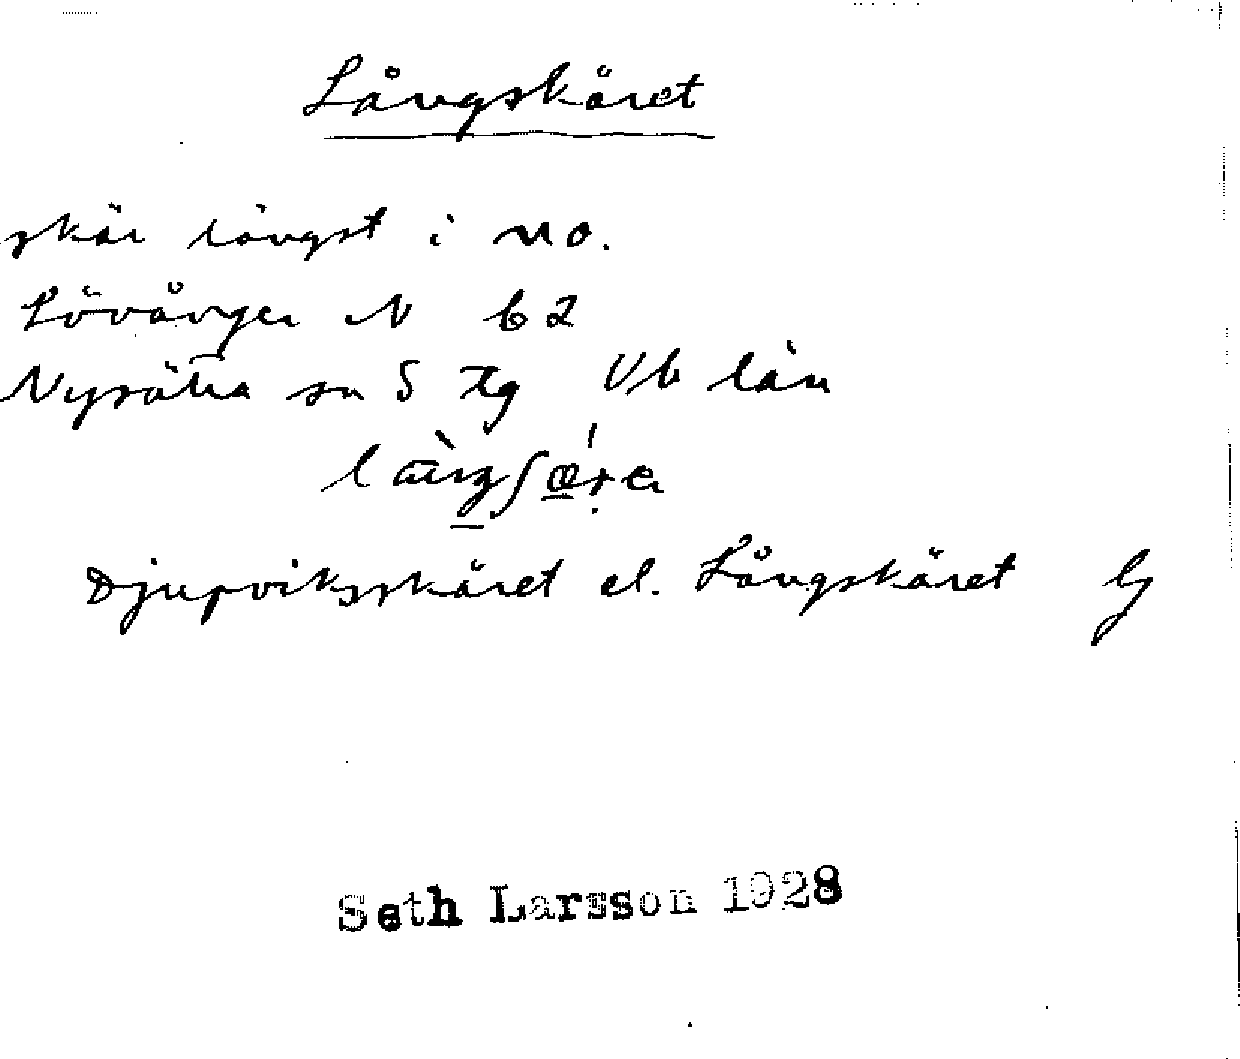 Långskäret
skär längst i no.
Lövånger N b 2
Nysätra sn S tg Vb län
Djupviksskäret el. Långskäret
Seth Larsson 1928